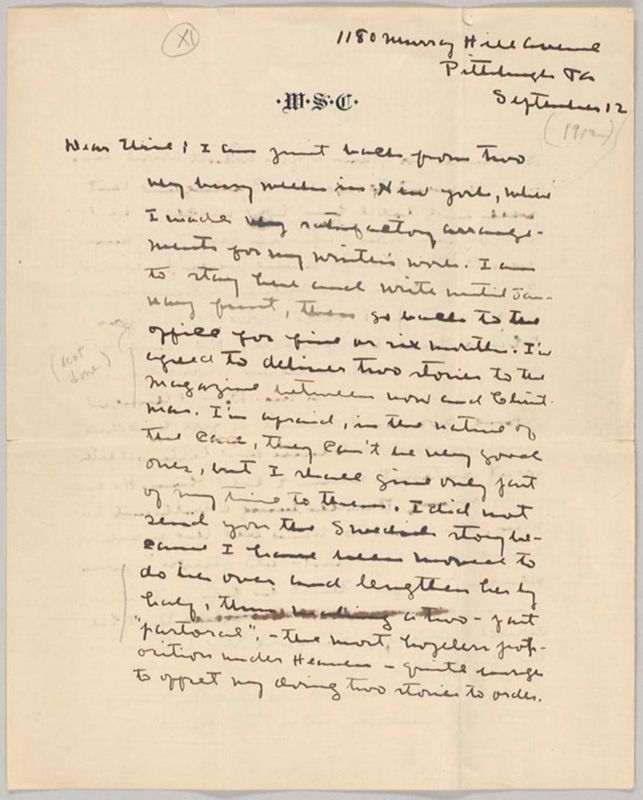 XI
1180 Murray Hill Avenue
Pittsburgh Pa
September 12
(1912)
·W·S·C·
Dear Elsie: I am just back from two
very busy weeks in New York, where
I made very satisfactory arrange-
ments for my winter's work. I am
to stay here and write until Jan-
uary first, then go back to the
office for five or six months. I've
agreed to deliver two stories to the
(not done)
magazine between now and Christ-
mas. I'm afraid, in the nature of
the case, they can't be very good
ones, but I shall give only part
of my time to them. I did not
send you the Swedish story be-
cause I have been moved to
do her over and lengthen her by
half, thus making a two-part
"pastoral",-the most hopeless prop-
osition under Heaven - quite enough
to offset my doing two stories to order.